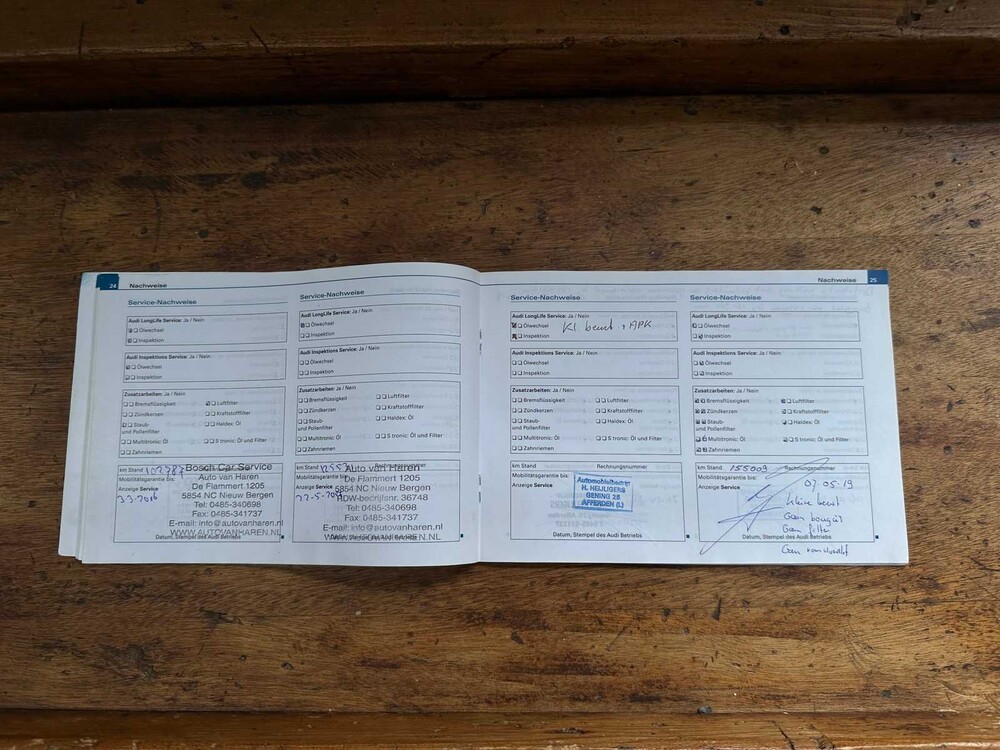 24 Nachweise
Service-Nachweise
Audi LongLife Service: Ja / Nein
Ölwechsel
Inspektion
Audi Inspektions Service: Ja / Nein
Ölwechsel
Inspektion
Zusatzarbeiten: Ja / Nein
Bremsflüssigkeit Luftfilter
Zündkerzen Kraftstofffilter
Staub- Haldex: Öl
und Pollenfilter
Multitronic: Öl S tronic: Öl und Filter
Zahnriemen
km Stand 102787
Mobilitätsgarantie bis:
Anzeige Service
3.3.2016
Bosch Car Service
Auto van Haren
De Flammert 1205
5854 NC Nieuw Bergen
Tel: 0485-340698
Fax: 0485-341737
E-mail: info@autovanharen.nl
WWW.AUTOVANHAREN.NL
Datum, Stempel des Audi Betriebs
Service-Nachweise
Audi LongLife Service: Ja / Nein
Ölwechsel
Inspektion
Audi Inspektions Service: Ja / Nein
Ölwechsel
Inspektion
Zusatzarbeiten: Ja / Nein
Bremsflüssigkeit Luftfilter
Zündkerzen Kraftstofffilter
Staub- Haldex: Öl
und Pollenfilter
Multitronic: Öl S tronic: Öl und Filter
Zahnriemen
km Stand
Mobilitätsgarantie bis:
Anzeige Service
Auto van Haren
De Flammert 1205
5854 NC Nieuw Bergen
RDW-bedrijfsnr. 36748
Tel: 0485-340698
Fax: 0485-341737
E-mail: info@autovanharen.nl
WWW.AUTOVANHAREN.NL
Nachweise 25
Service-Nachweise
Audi LongLife Service: Ja / Nein
Ölwechsel Kl beurt + APK
Inspektion
Audi Inspektions Service: Ja / Nein
Ölwechsel
Inspektion
Zusatzarbeiten: Ja / Nein
Bremsflüssigkeit Luftfilter
Zündkerzen Kraftstofffilter
Staub- Haldex: Öl
und Pollenfilter
Multitronic: Öl S tronic: Öl und Filter
Zahnriemen
km Stand Rechnungsnummer
Mobilitätsgarantie bis:
Anzeige Service
Automobielbedrijf
H. HEIJLIGERS
GENING 28
AFFERDEN (L)
Datum, Stempel des Audi Betriebs
Service-Nachweise
Audi LongLife Service: Ja / Nein
Ölwechsel
Inspektion
Audi Inspektions Service: Ja / Nein
Ölwechsel
Inspektion
Zusatzarbeiten: Ja / Nein
Bremsflüssigkeit Luftfilter
Zündkerzen Kraftstofffilter
Staub- Haldex: Öl
und Pollenfilter
Multitronic: Öl S tronic: Öl und Filter
Zahnriemen
km Stand 155009 Rechnungsnummer
Mobilitätsgarantie bis: 07.05.19
Anzeige Service
Kleine beurt
Geen bougies
Geen filter
Datum, Stempel des Audi Betriebs
Geen